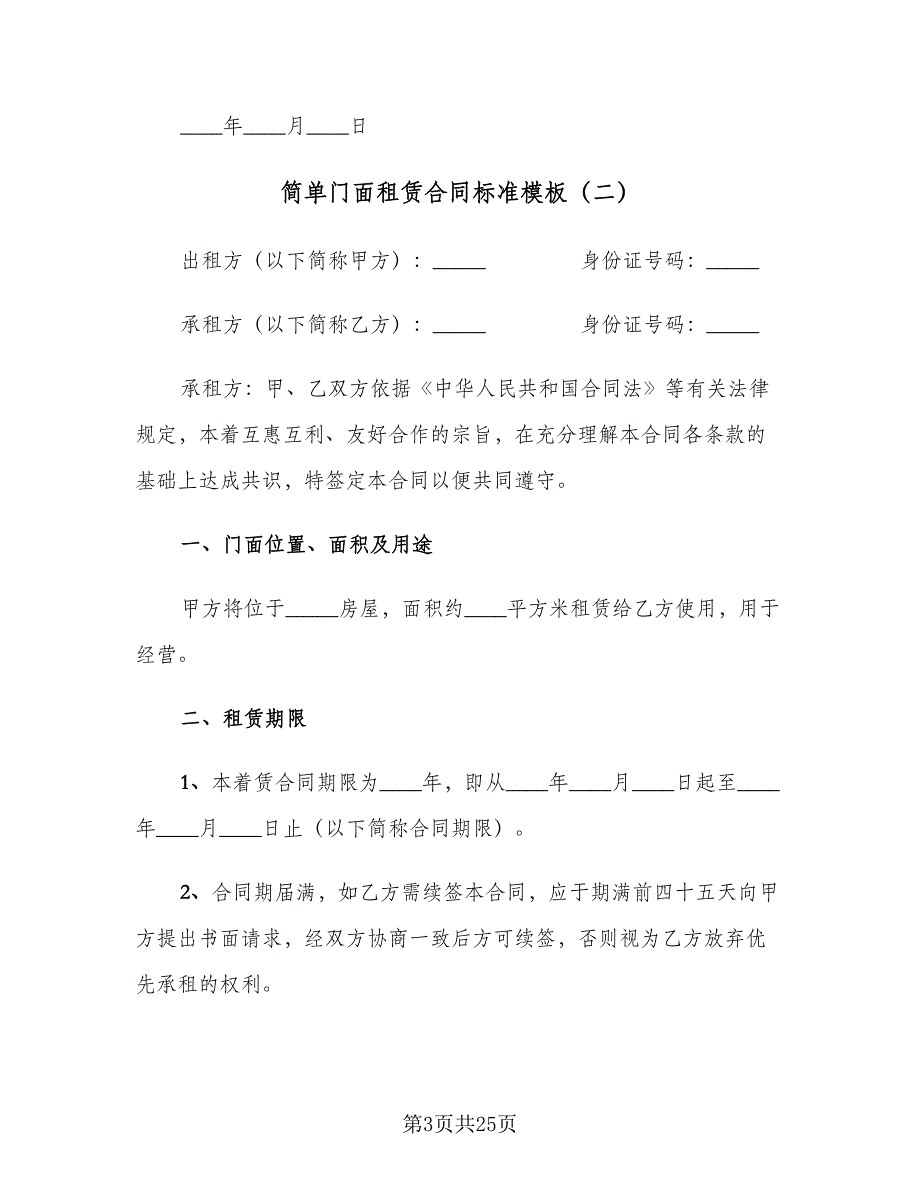 ____年____月____日
简单门面租赁合同标准模板（二）
出租方（以下简称甲方）：_____ 身份证号码：_____
承租方（以下简称乙方）：_____ 身份证号码：_____
承租方：甲、乙双方依据《中华人民共和国合同法》等有关法律
规定，本着互惠互利、友好合作的宗旨，在充分理解本合同各条款的
基础上达成共识，特签定本合同以便共同遵守。
一、门面位置、面积及用途
甲方将位于_____房屋，面积约____平方米租赁给乙方使用，用于
经营。
二、租赁期限
1、本着赁合同期限为____年，即从____年____月____日起至____
年____月____日止（以下简称合同期限）。
2、合同期届满，如乙方需续签本合同，应于期满前四十五天向甲
方提出书面请求，经双方协商一致后方可续签，否则视为乙方放弃优
先承租的权利。
第3页共25页